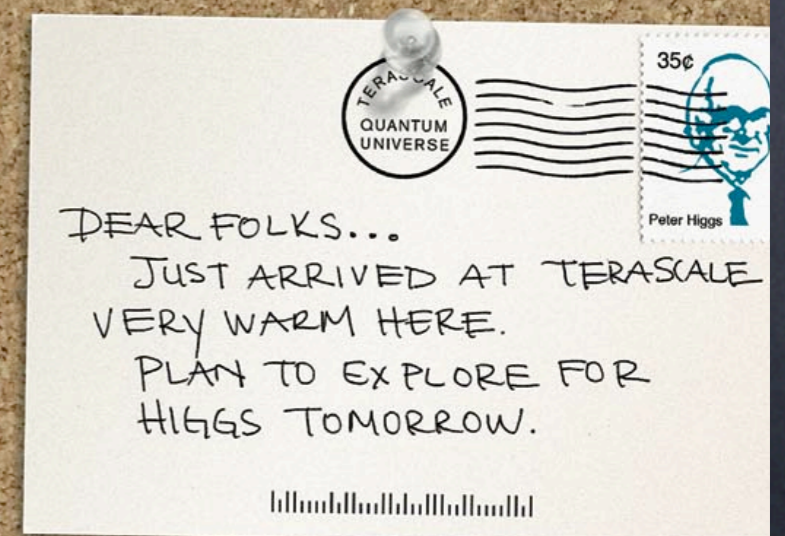 TERASCALE
QUANTUM
UNIVERSE
35¢
Peter Higgs
DEAR FOLKS...
JUST ARRIVED AT TERASCALE
VERY WARM HERE.
PLAN TO EXPLORE FOR
HIGGS TOMORROW.